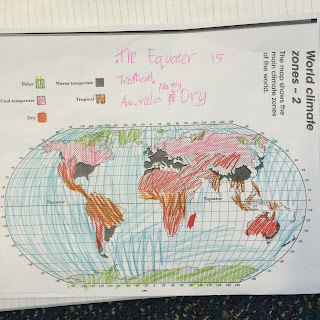 The Equater is
Tropical.
Australia is Mainly Dry
World climate
zones – 2
The map shows the
main climate zones
of the world.
Polar
Warm temperate
Cool temperate
Tropical
Dry
Equator
Equator